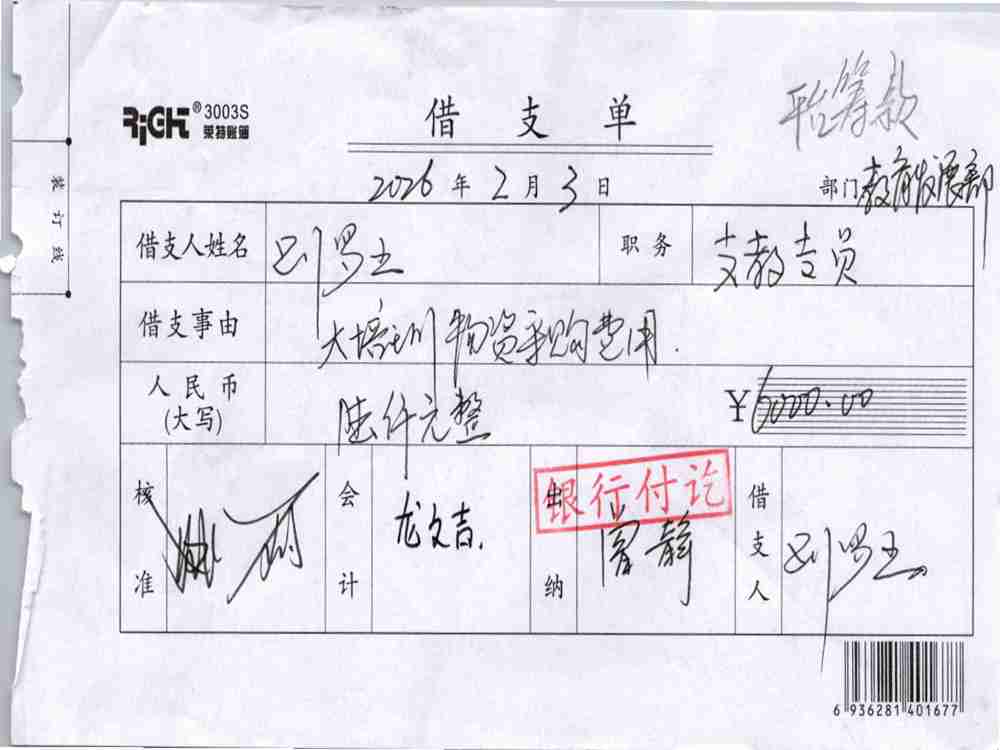 RiGHT® 3003S
莱特账簿
借支单
平台筹款
2026年2月3日
部门 教育发展部
装订线
借支人姓名
职务 支教专员
借支事由 大培训物资采购费用.
人民币(大写) 陆仟元整 ¥6000.00
核准
会计 龙文吉.
出纳 静
银行付讫
借支人
6 936281 401677